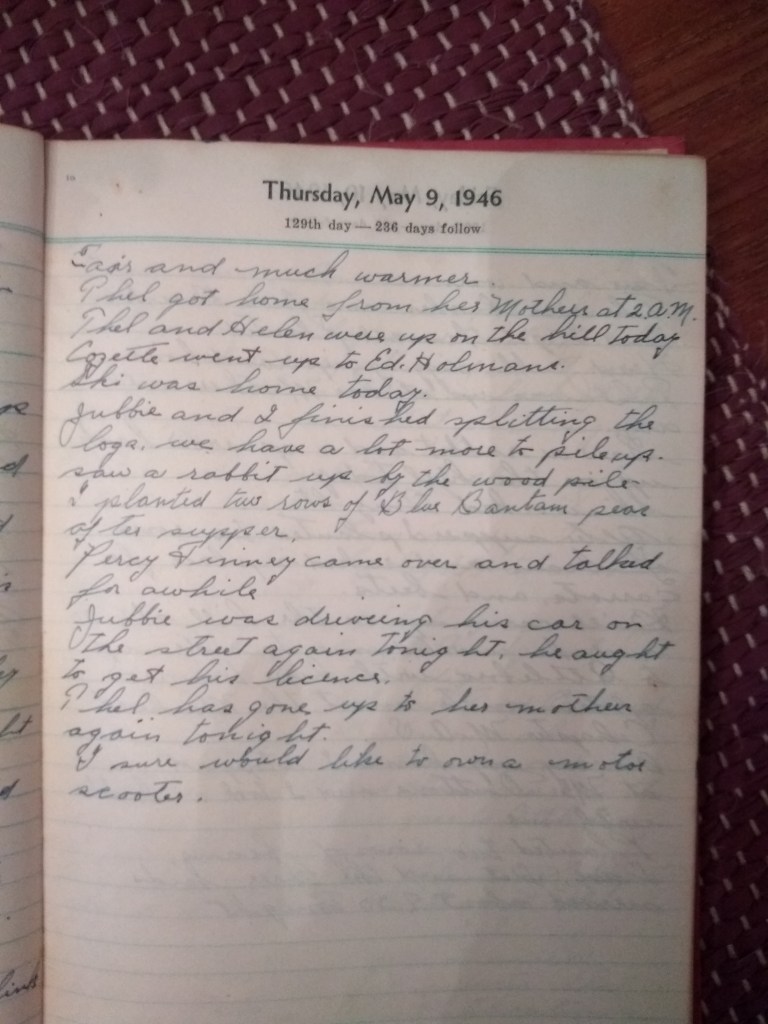 Thursday, May 9, 1946
129th day — 236 days follow
Fair and much warmer.
Phel got home from her Mothers at 2 A.M.
Phel and Helen were up on the hill today
Cozette went up to Ed. Holmans.
Ski was home today.
Jubbie and I finished splitting the
logs. we have a lot more to pile up.
saw a rabbit up by the wood pile
I planted two rows of Blue Bantam peas
after supper.
Percy Finney came over and talked
for awhile
Jubbie was driveing his car on
the street again tonight, he aught
to get his licence.
Phel has gone up to her mothers
again tonight.
I sure would like to own a motor
scooter.